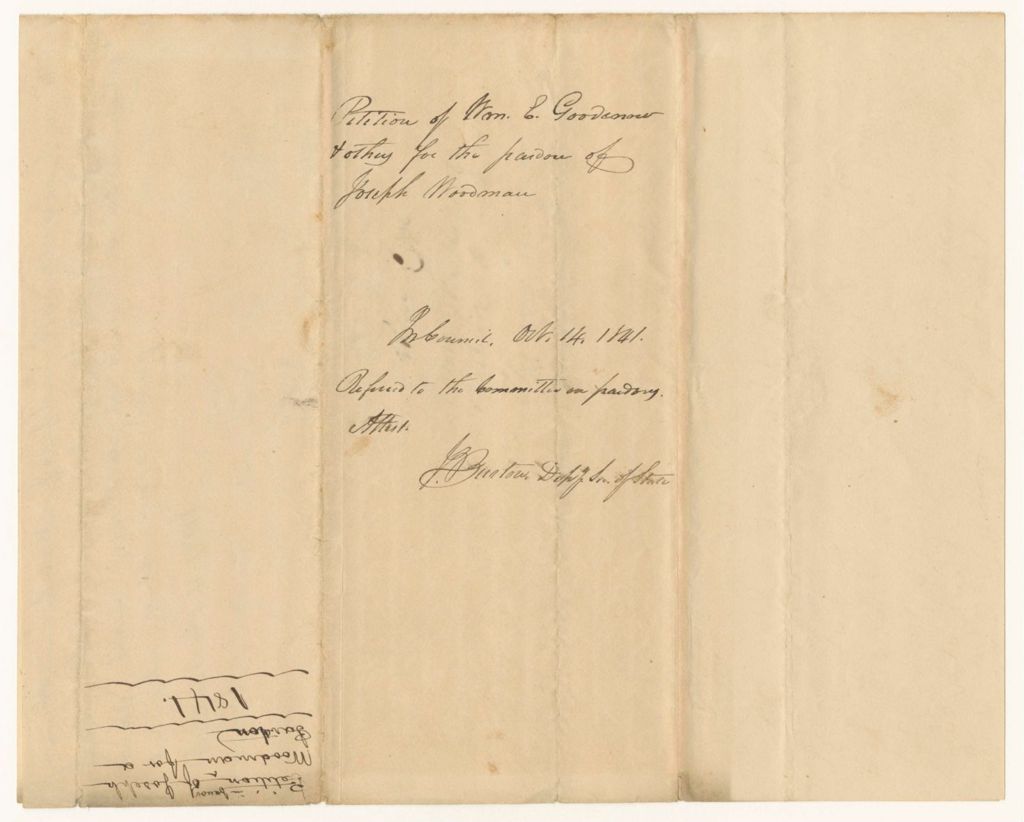 Petition of Wm. E. Goodenow
& others for the pardon of
Joseph Woodman
In Council, Oct. 14, 1841.
Referred to the Committee on pardons.
Attest.
Depy Sec. of State
Petition of Joseph
Woodman for a
Pardon
1841.